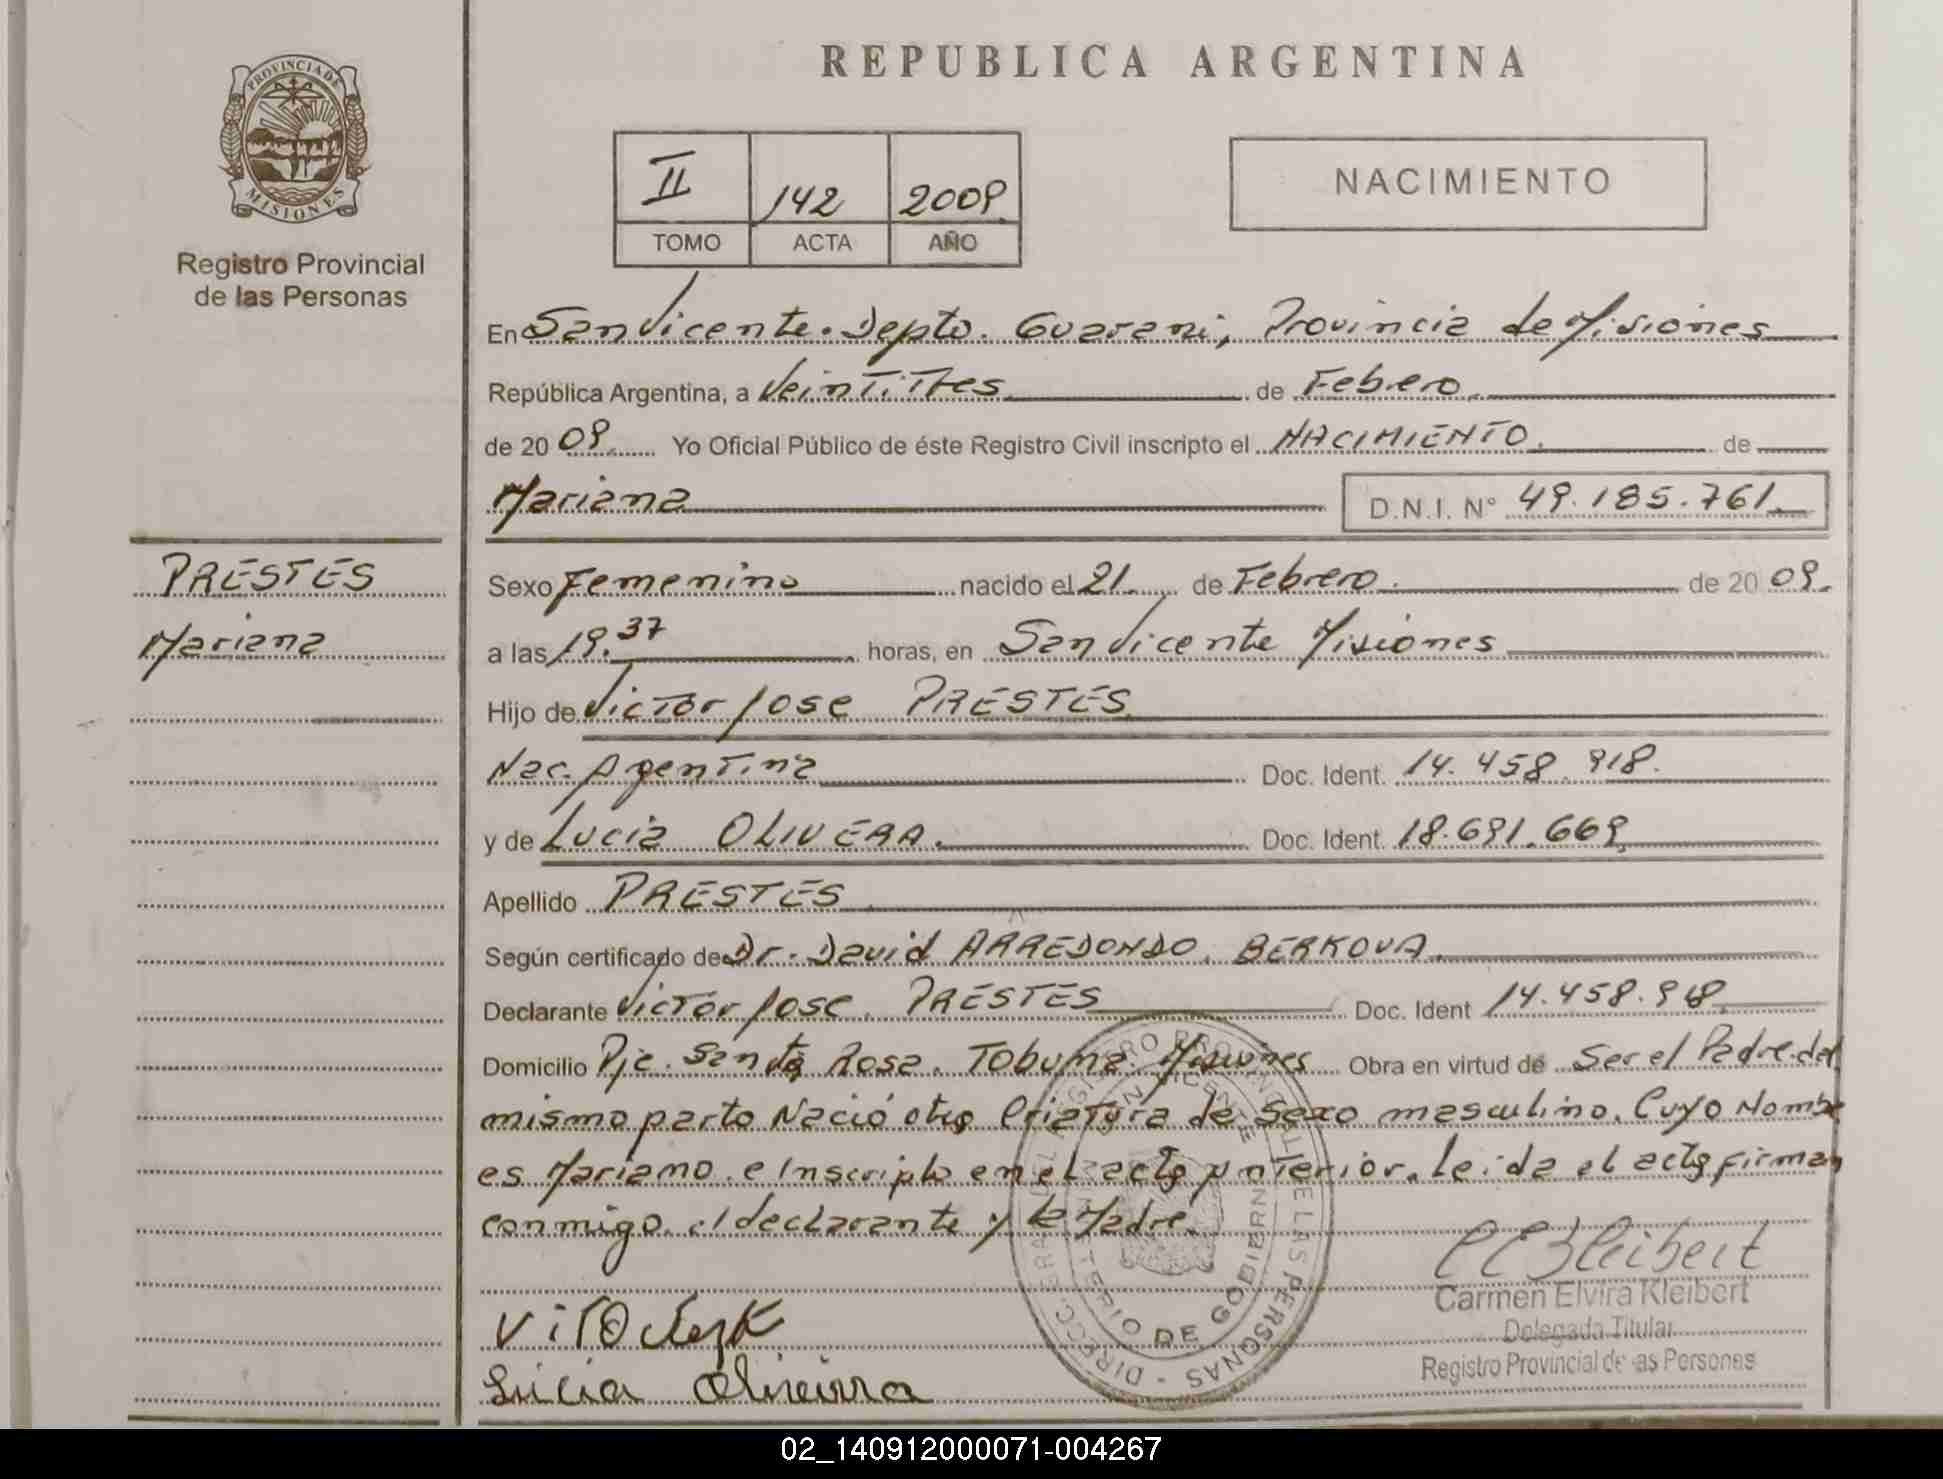 REPUBLICA ARGENTINA
PROVINCIA DE
MISIONES
Registro Provincial
de las Personas
II 142 2009
TOMO ACTA AÑO
NACIMIENTO
En San Vicente. Depto. Guarani, Provincia de Misiones
República Argentina, a Veintitres de Febrero
de 20 09. Yo Oficial Público de éste Registro Civil inscripto el NACIMIENTO. de
Mariana D.N.I. N° 49.185.761
PRESTES
Mariana
Sexo Femenino nacido el 21 de Febrero. de 20 09.
a las 19.37 horas, en San Vicente Misiones
Hijo de Victor Jose PRESTES
Nac. Agentina Doc. Ident. 14.458.918.
y de Lucia OLIVERA. Doc. Ident. 18.691.669
Apellido PRESTES
Según certificado de Dr. David ARREDONDO BERKOVA.
Declarante Victor Jose PRESTES Doc. Ident 14.458.918
Domicilio Pje. Santa Rosa. Tobuna. Misiones Obra en virtud de Ser el Padre. del
mismo parto Nació otra Criatura de Sexo masculino. Cuyo Nombre
es Mariano. e Inscripto en el acta anterior. Leida el acta firman
conmigo. el declarante y la Madre.
Carmen Elvira Kleibert
Delegada Titular
Registro Provincial de las Personas
Lucia Oliveira
DIRECC. GRAL. REGISTRO PROVINCIAL DE LAS PERSONAS
SAN VICENTE
MINISTERIO DE GOBIERNO
02_140912000071-004267